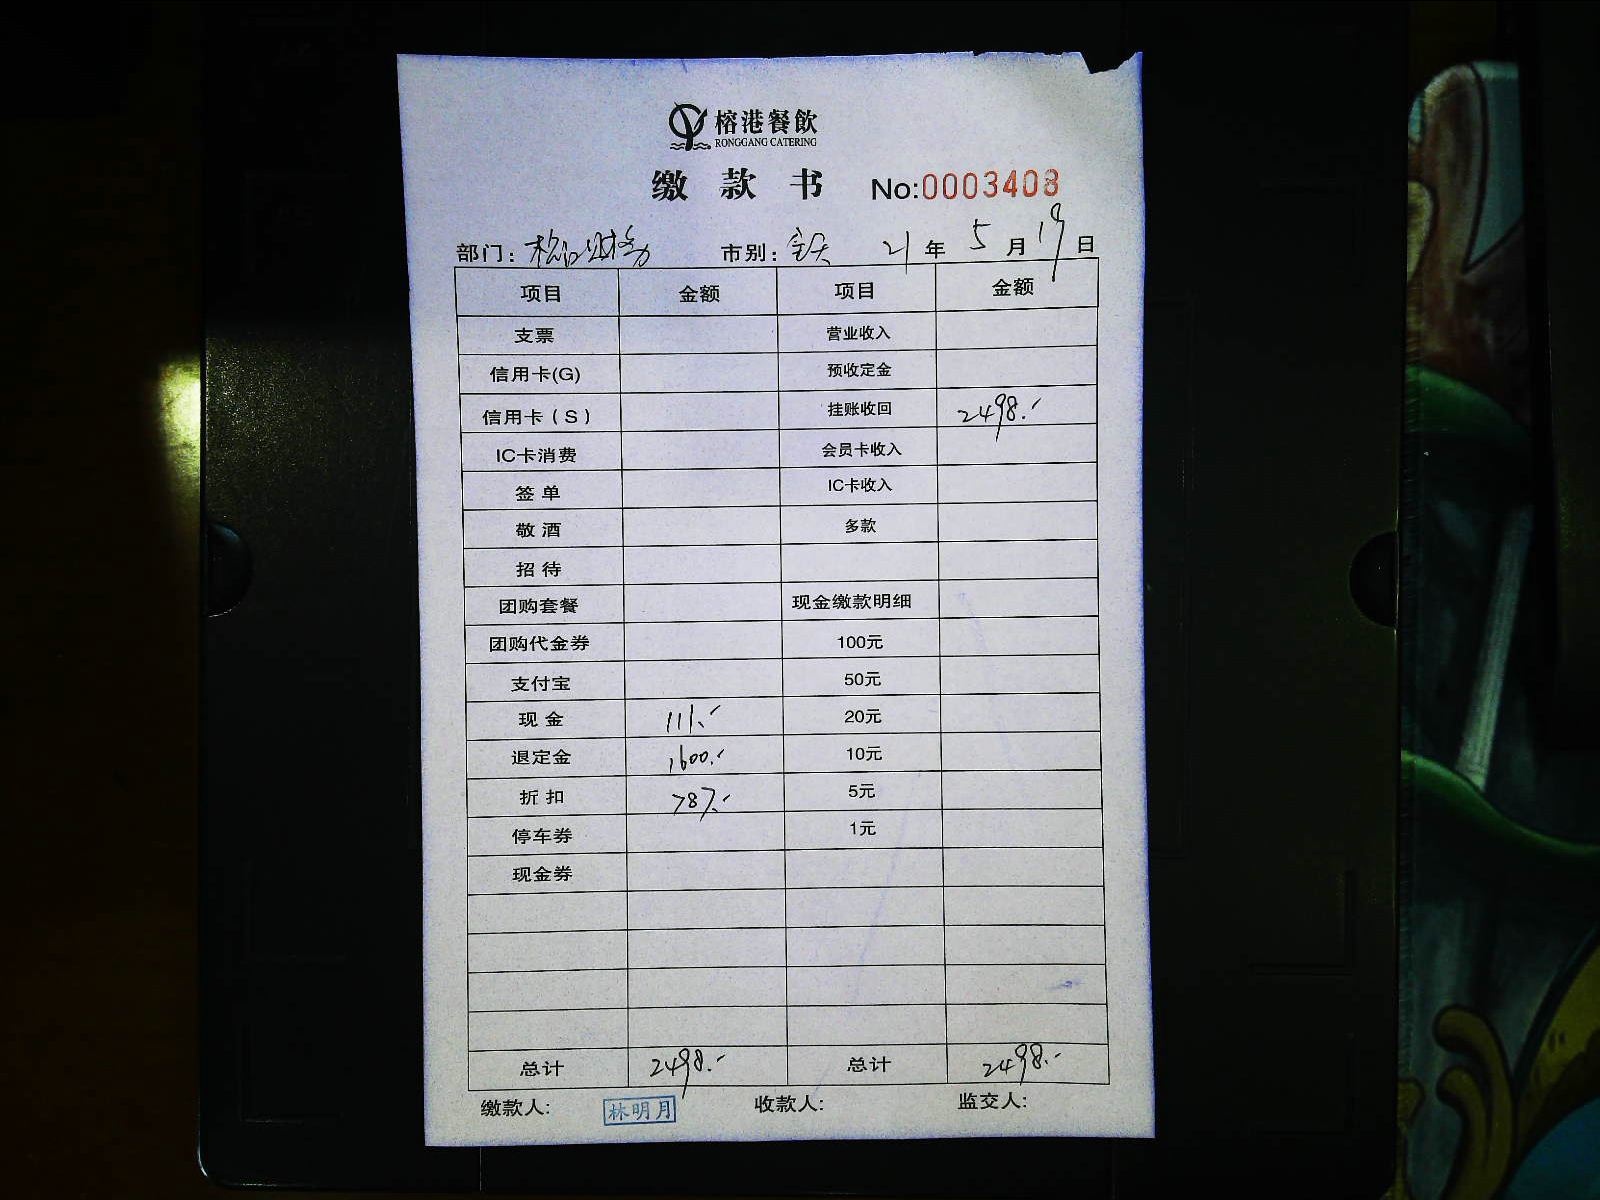 榕港餐飲
RONGGANG CATERING
缴款书 No:0003408
部门: 榕江财务 市别: 全天 21年 5月 19日
项目 金额 项目 金额
支票 营业收入
信用卡(G) 预收定金
信用卡(S) 挂账收回 2498.-
IC卡消费 会员卡收入
签单 IC卡收入
敬酒 多款
招待
团购套餐 现金缴款明细
团购代金券 100元
支付宝 50元
现金 111.- 20元
退定金 1600.- 10元
折扣 787.- 5元
停车券 1元
现金券
总计 2498.- 总计 2498.-
缴款人: 林明月 收款人: 监交人: